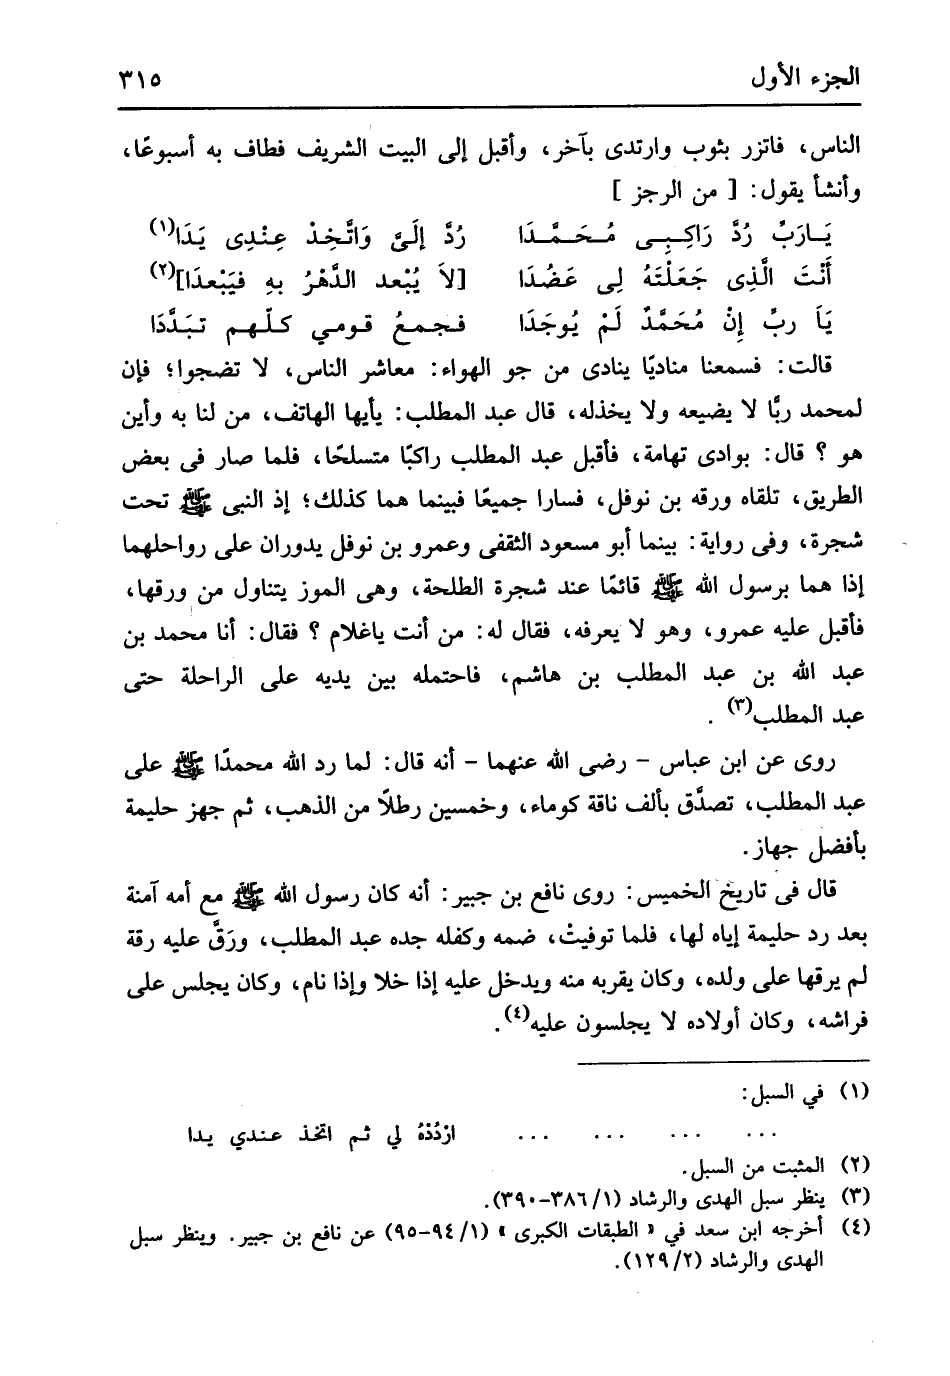 الجزء الأول ٣١٥
الناس، فاتزر بثوب وارتدى بآخر، وأقبل إلى البيت الشريف فطاف به أسبوعًا،
وأنشأ يقول: [ من الرجز ]
يَـارَبِّ رُدَّ رَاكِـبِـى مُـحَـمَّـدَا رُدَّ إِلَىَّ وَاتَّخِذْ عِنْدِى يَدَا(١)
أَنْتَ الَّذِى جَعَلْتَهُ لِى عَضُدَا [لاَ يُبْعد الدَّهْرُ بهِ فيَبْعدَا](٢)
يَاَ ربِّ إِنْ مُحَمَّدٌ لَمْ يُوجَدَا فـجـمعُ قـومي كـلّـهـم تـبَـدَّدَا
قالت: فسمعنا مناديًا ينادى من جو الهواء: معاشر الناس، لا تضجوا؛ فإن
لمحمد ربًّا لا يضيعه ولا يخذله، قال عبد المطلب: يأيها الهاتف، من لنا به وأين
هو ؟ قال: بوادى تهامة، فأقبل عبد المطلب راكبًا متسلحًا، فلما صار فى بعض
الطريق، تلقاه ورقه بن نوفل، فسارا جميعًا فبينما هما كذلك؛ إذ النبى ﷺ تحت
شجرة، وفى رواية: بينما أبو مسعود الثقفى وعمرو بن نوفل يدوران على رواحلهما
إذا هما برسول الله ﷺ قائمًا عند شجرة الطلحة، وهى الموز يتناول من ورقها،
فأقبل عليه عمرو، وهو لا يعرفه، فقال له: من أنت ياغلام ؟ فقال: أنا محمد بن
عبد الله بن عبد المطلب بن هاشم، فاحتمله بين يديه على الراحلة حتى
عبد المطلب(٣) .
روى عن ابن عباس - رضى الله عنهما - أنه قال: لما رد الله محمدًا ﷺ على
عبد المطلب، تصدَّق بألف ناقة كوماء، وخمسين رطلاً من الذهب، ثم جهز حليمة
بأفضل جهاز.
قال فى تاريخ الخميس: روى نافع بن جبير: أنه كان رسول الله ﷺ مع أمه آمنة
بعد رد حليمة إياه لها، فلما توفيتْ، ضمه وكفله جده عبد المطلب، ورَقَّ عليه رقة
لم يرقها على ولده، وكان يقربه منه ويدخل عليه إذا خلا وإذا نام، وكان يجلس على
فراشه، وكان أولاده لا يجلسون عليه(٤).
(١) في السبل:
... ... ... ... ارْدُدْهُ لي ثم اتخذ عندي يدا
(٢) المثبت من السبل.
(٣) ينظر سبل الهدى والرشاد (١/ ٣٨٦-٣٩٠).
(٤) أخرجه ابن سعد في « الطبقات الكبرى » (١/ ٩٤-٩٥) عن نافع بن جبير. وينظر سبل
الهدى والرشاد (٢/ ١٢٩).